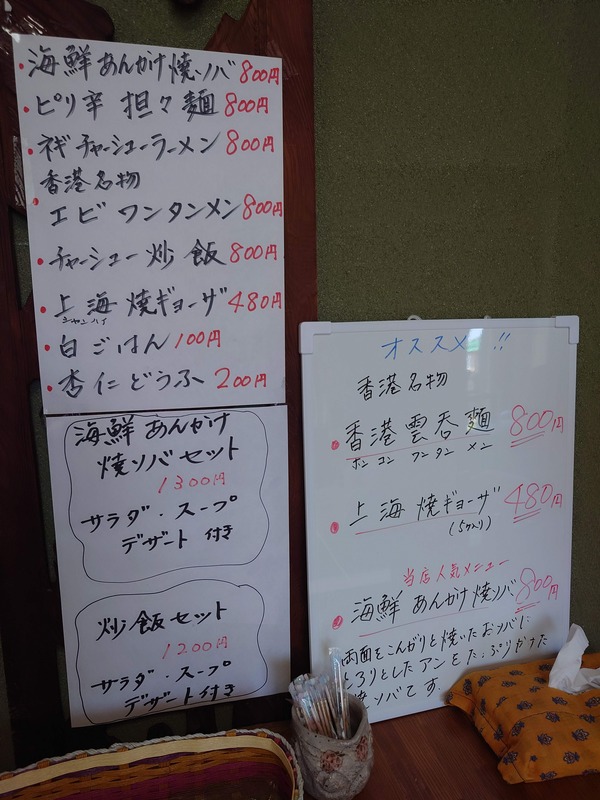 ・海鮮あんかけ焼ソバ 800円
・ピリ辛 担々麺 800円
・ネギチャーシューラーメン 800円
香港名物
・エビ ワンタンメン 800円
・チャーシュー炒飯 800円
・上海焼ギョーザ 480円
シャンハイ
・白ごはん 100円
・杏仁どうふ 200円
海鮮あんかけ
焼ソバセット
1300円
サラダ・スープ
デザート 付き
炒飯セット
1200円
サラダ・スープ
デザート付き
オススメ!!
香港名物
・香港雲呑麺 800円
ホンコン ワンタン メン
・上海焼ギョーザ 480円
(5ケ入り)
当店人気メニュー
・海鮮あんかけ焼ソバ 800円
両面をこんがりと焼いたおソバに
とろりとしたアンをたっぷりかけた
焼ソバです。